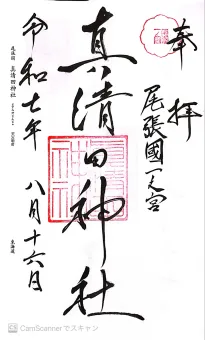 奉拝
尾張國一之宮
真清田神社
令和七年 八月十六日
CamScanner でスキャン